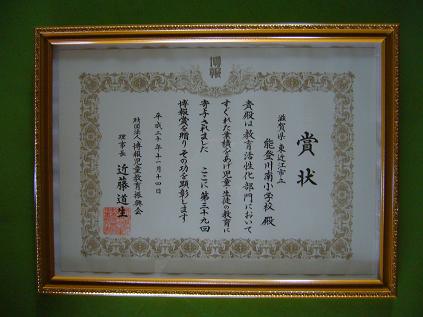 博報
賞状
滋賀県東近江市立
能登川南小学校 殿
貴殿は教育活性化部門において
すぐれた業績をあげ児童・生徒の教育に
寄与されました ここに第三十九回
博報賞を贈り その功を顕彰します
平成二十年十一月十四日
財団法人 博報児童教育振興会
理事長 近藤道生